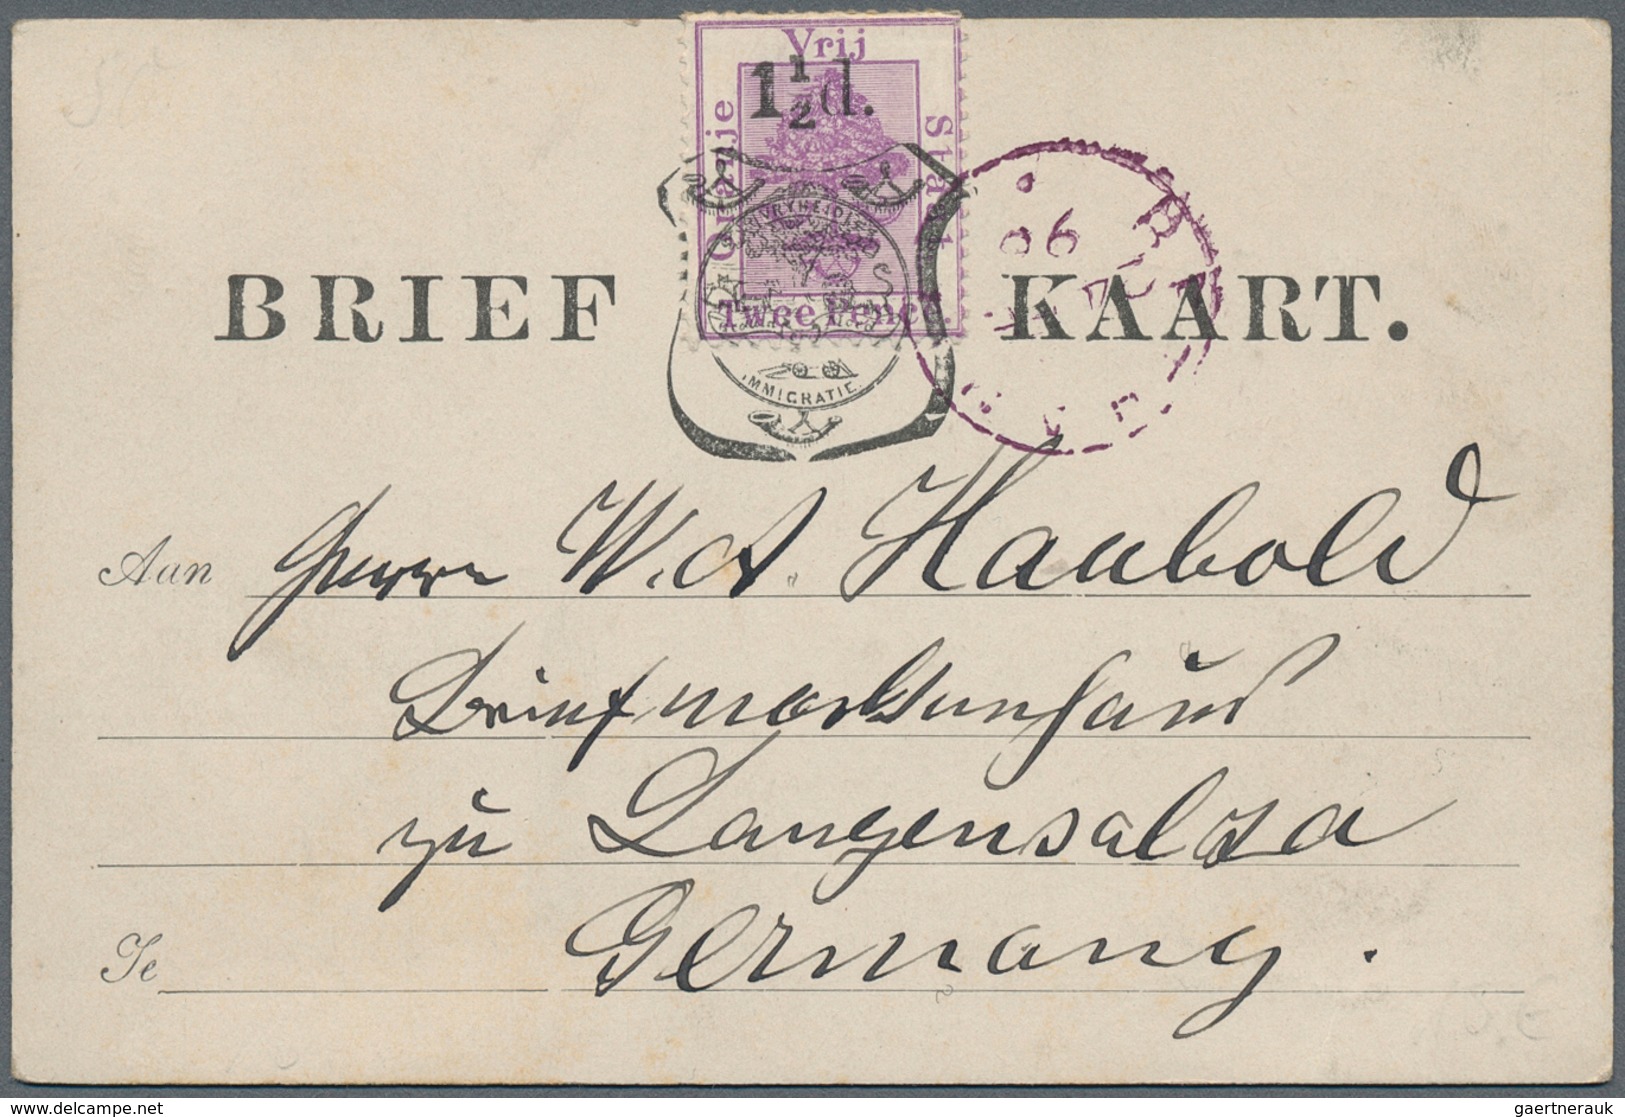 Vrij
1½d.
Oranje
Staat
Twee Pence
VRYHEID
IMMIGRATIE.
96
BRIEF KAART.
Aan Herrn W. A. Haubold
Briefmarkenhaus
zu Langensalza
Te Germany.
the-philatelist-community.com
gaertnerauk